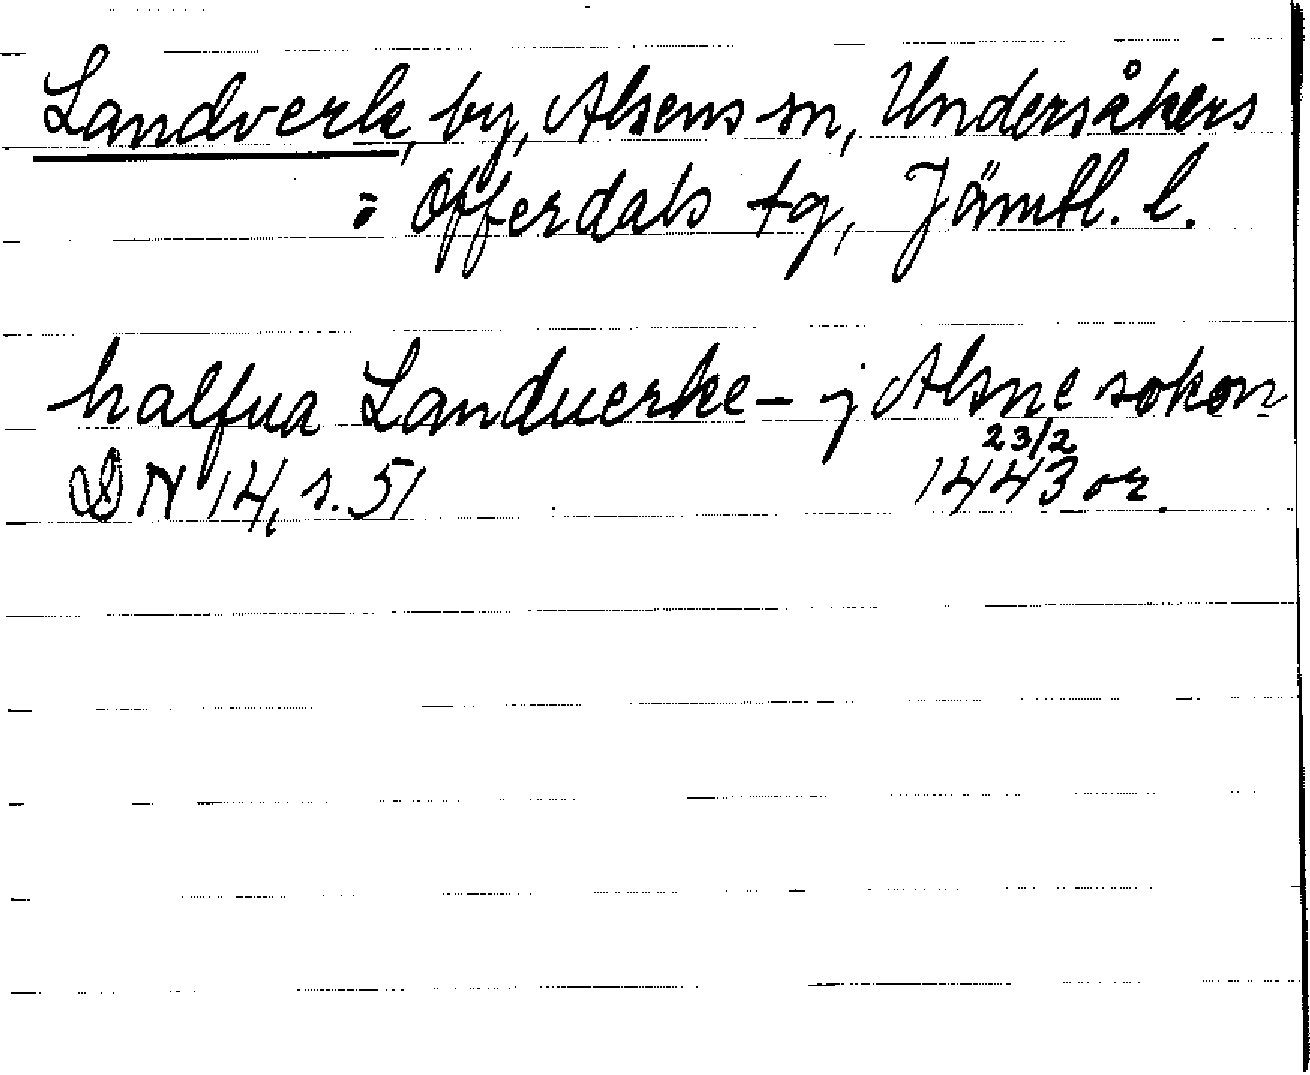 Landverk, by, Alsens sn, Undersåkers
o Offerdals tg, Jämtl. l.
halfua Landuerke – j Alsne sokon
23/2
DN 14, s. 51 1443 or.